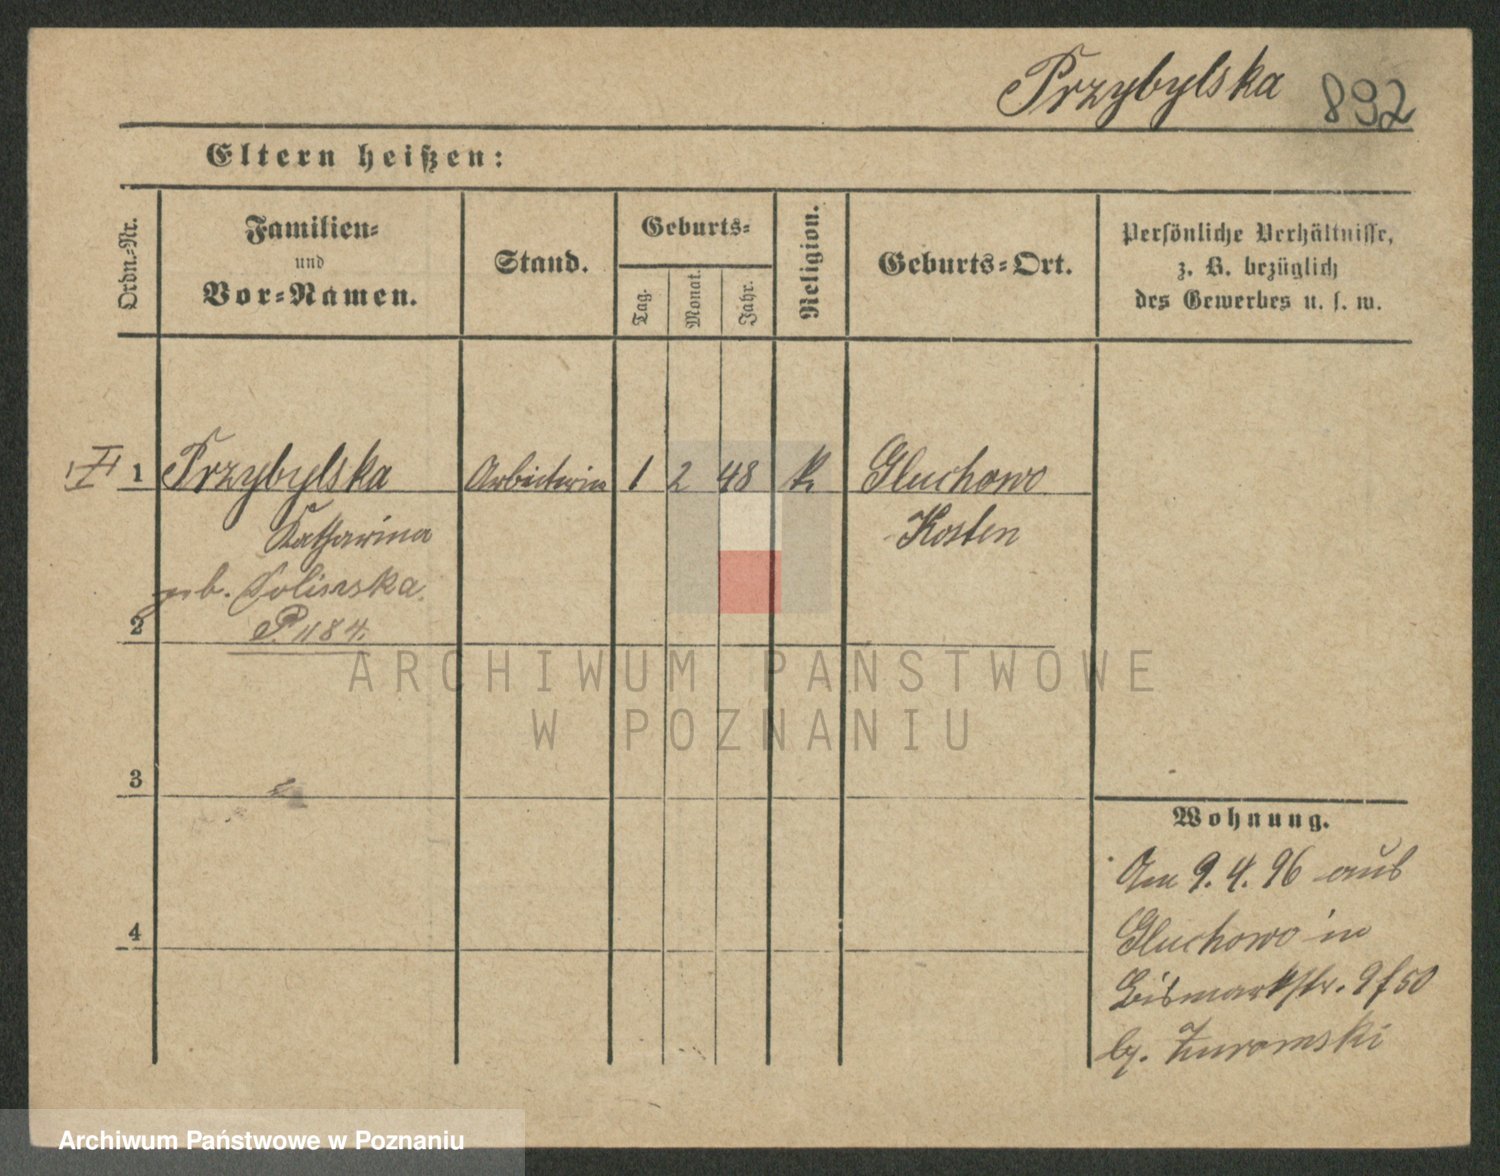 Przybylska 892
Eltern heißen:
Ordn.-Nr.
Familien-
und
Vor-Namen.
Stand.
Geburts-
Tag.
Monat.
Jahr.
Religion.
Geburts-Ort.
Persönliche Verhältnisse,
z. B. bezüglich
des Gewerbes u. s. w.
1 Przybylska Arbeiterin 1 2 48 k. Gluchowo
Katharina Kosten
geb.
2 P. 1184.
3
4
Wohnung.
Am 9. 4. 96 aus
Gluchowo in
Bismarkstr. 9 f 50
by. Zuromski
ARCHIWUM PAŃSTWOWE
W POZNANIU
Archiwum Państwowe w Poznaniu